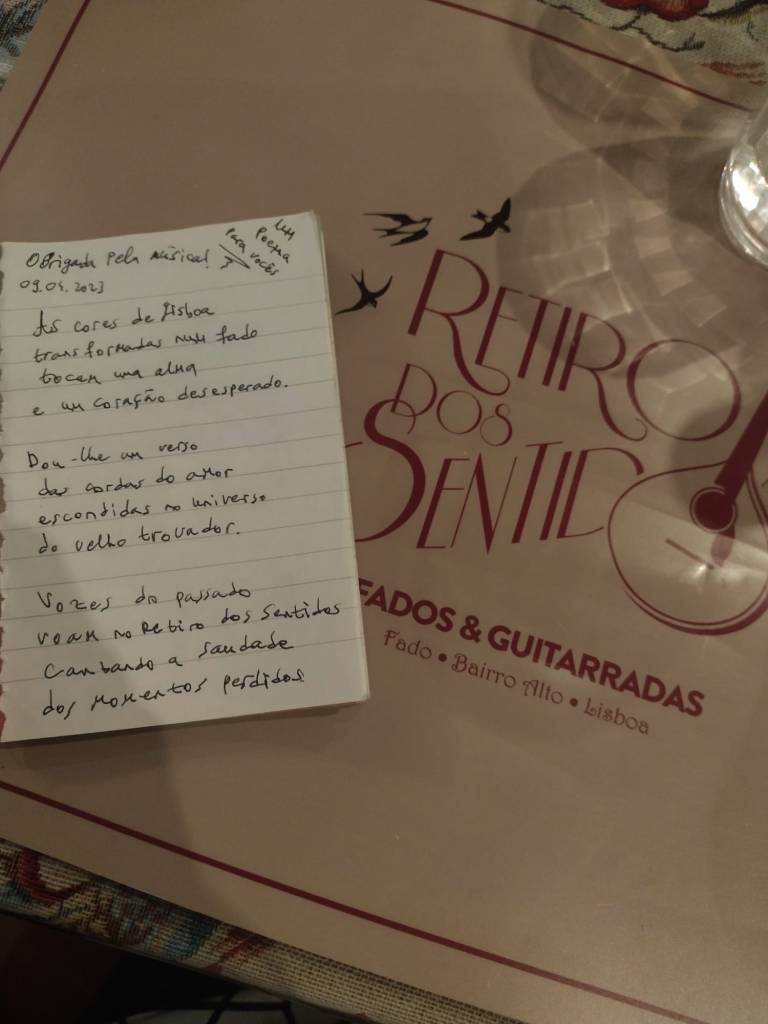 Obrigada pela música!
Um
Poema
para vocês
09.04.2023
As cores de Lisboa
transformadas num fado
tocam uma alma
e um coração desesperado.
Dou-lhe um verso
das cordas do amor
escondidas no universo
do velho trovador.
Vozes do passado
voam no Retiro dos Sentidos
cantando a saudade
dos momentos perdidos.
RETIRO
DOS
SENTID
FADOS & GUITARRADAS
Fado • Bairro Alto • Lisboa